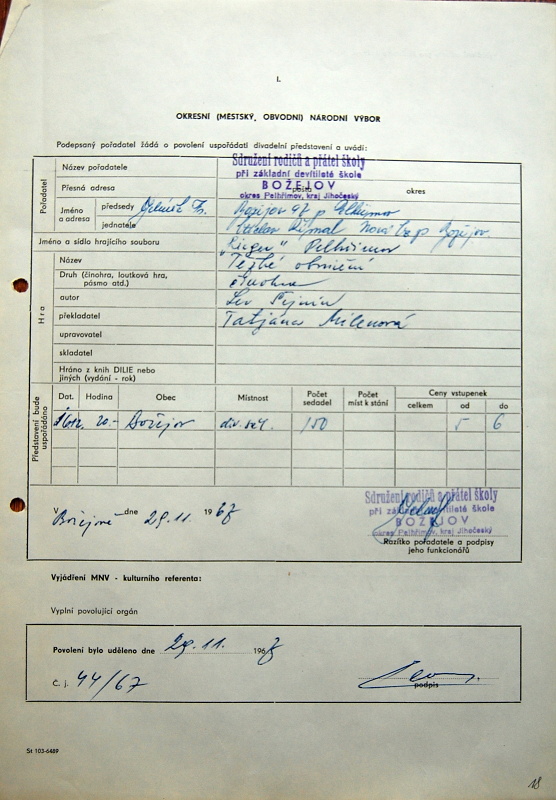 I.
OKRESNÍ (MĚSTSKÝ, OBVODNÍ) NÁRODNÍ VÝBOR
Podepsaný pořadatel žádá o povolení uspořádati divadelní představení a uvádí:
Pořadatel
Název pořadatele
Sdružení rodičů a přátel školy
při základní devítileté škole
Přesná adresa
BOŽEJOV
pošta
okres
okres Pelhřimov, kraj Jihočeský
Jméno a adresa
předsedy
Božejov 97 p. Pelhřimov
jednatele
Nová Božejov
Jméno a sídlo hrajícího souboru
„Rieger" Pelhřimov
Hra
Název
Těžké obvinění
Druh (činohra, loutková hra, pásmo atd.)
činohra
autor
Lev Šejnin
překladatel
Tatjána Milenová
upravovatel
skladatel
Hráno z knih DILIE nebo jiných (vydání - rok)
Představení bude uspořádáno
Dat. Hodina Obec Místnost Počet sedadel Počet míst k stání Ceny vstupenek
celkem od do
16/12. 20.- Božejov div. sál. 150 5 6
V Božejově dne 29.11. 1967
Sdružení rodičů a přátel školy
při základní devítileté škole
BOŽEJOV
okres Pelhřimov, kraj Jihočeský
Razítko pořadatele a podpisy
jeho funkcionářů
Vyjádření MNV - kulturního referenta:
Vyplní povolující orgán
Povolení bylo uděleno dne 29.11. 1967
Č. j. 44/67
podpis
St 103-6489
18